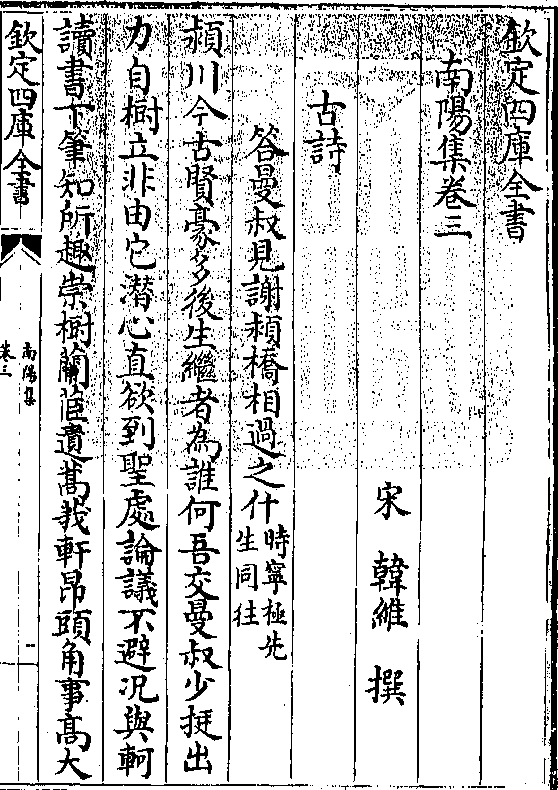 欽定四庫全書
南陽集卷三
宋　韓維　撰
古詩
答曼叔見謝潁橋相過之什時寧極先生同往
潁川今古賢豪多後生繼者為誰何吾交曼叔少挺出
力自樹立非由它潜心直欲到聖處論議不避况與軻
讀書下筆知所趣崇樹蘭茝遺蒿莪軒昂頭角事髙大
欽定四庫全書
南陽集
卷三